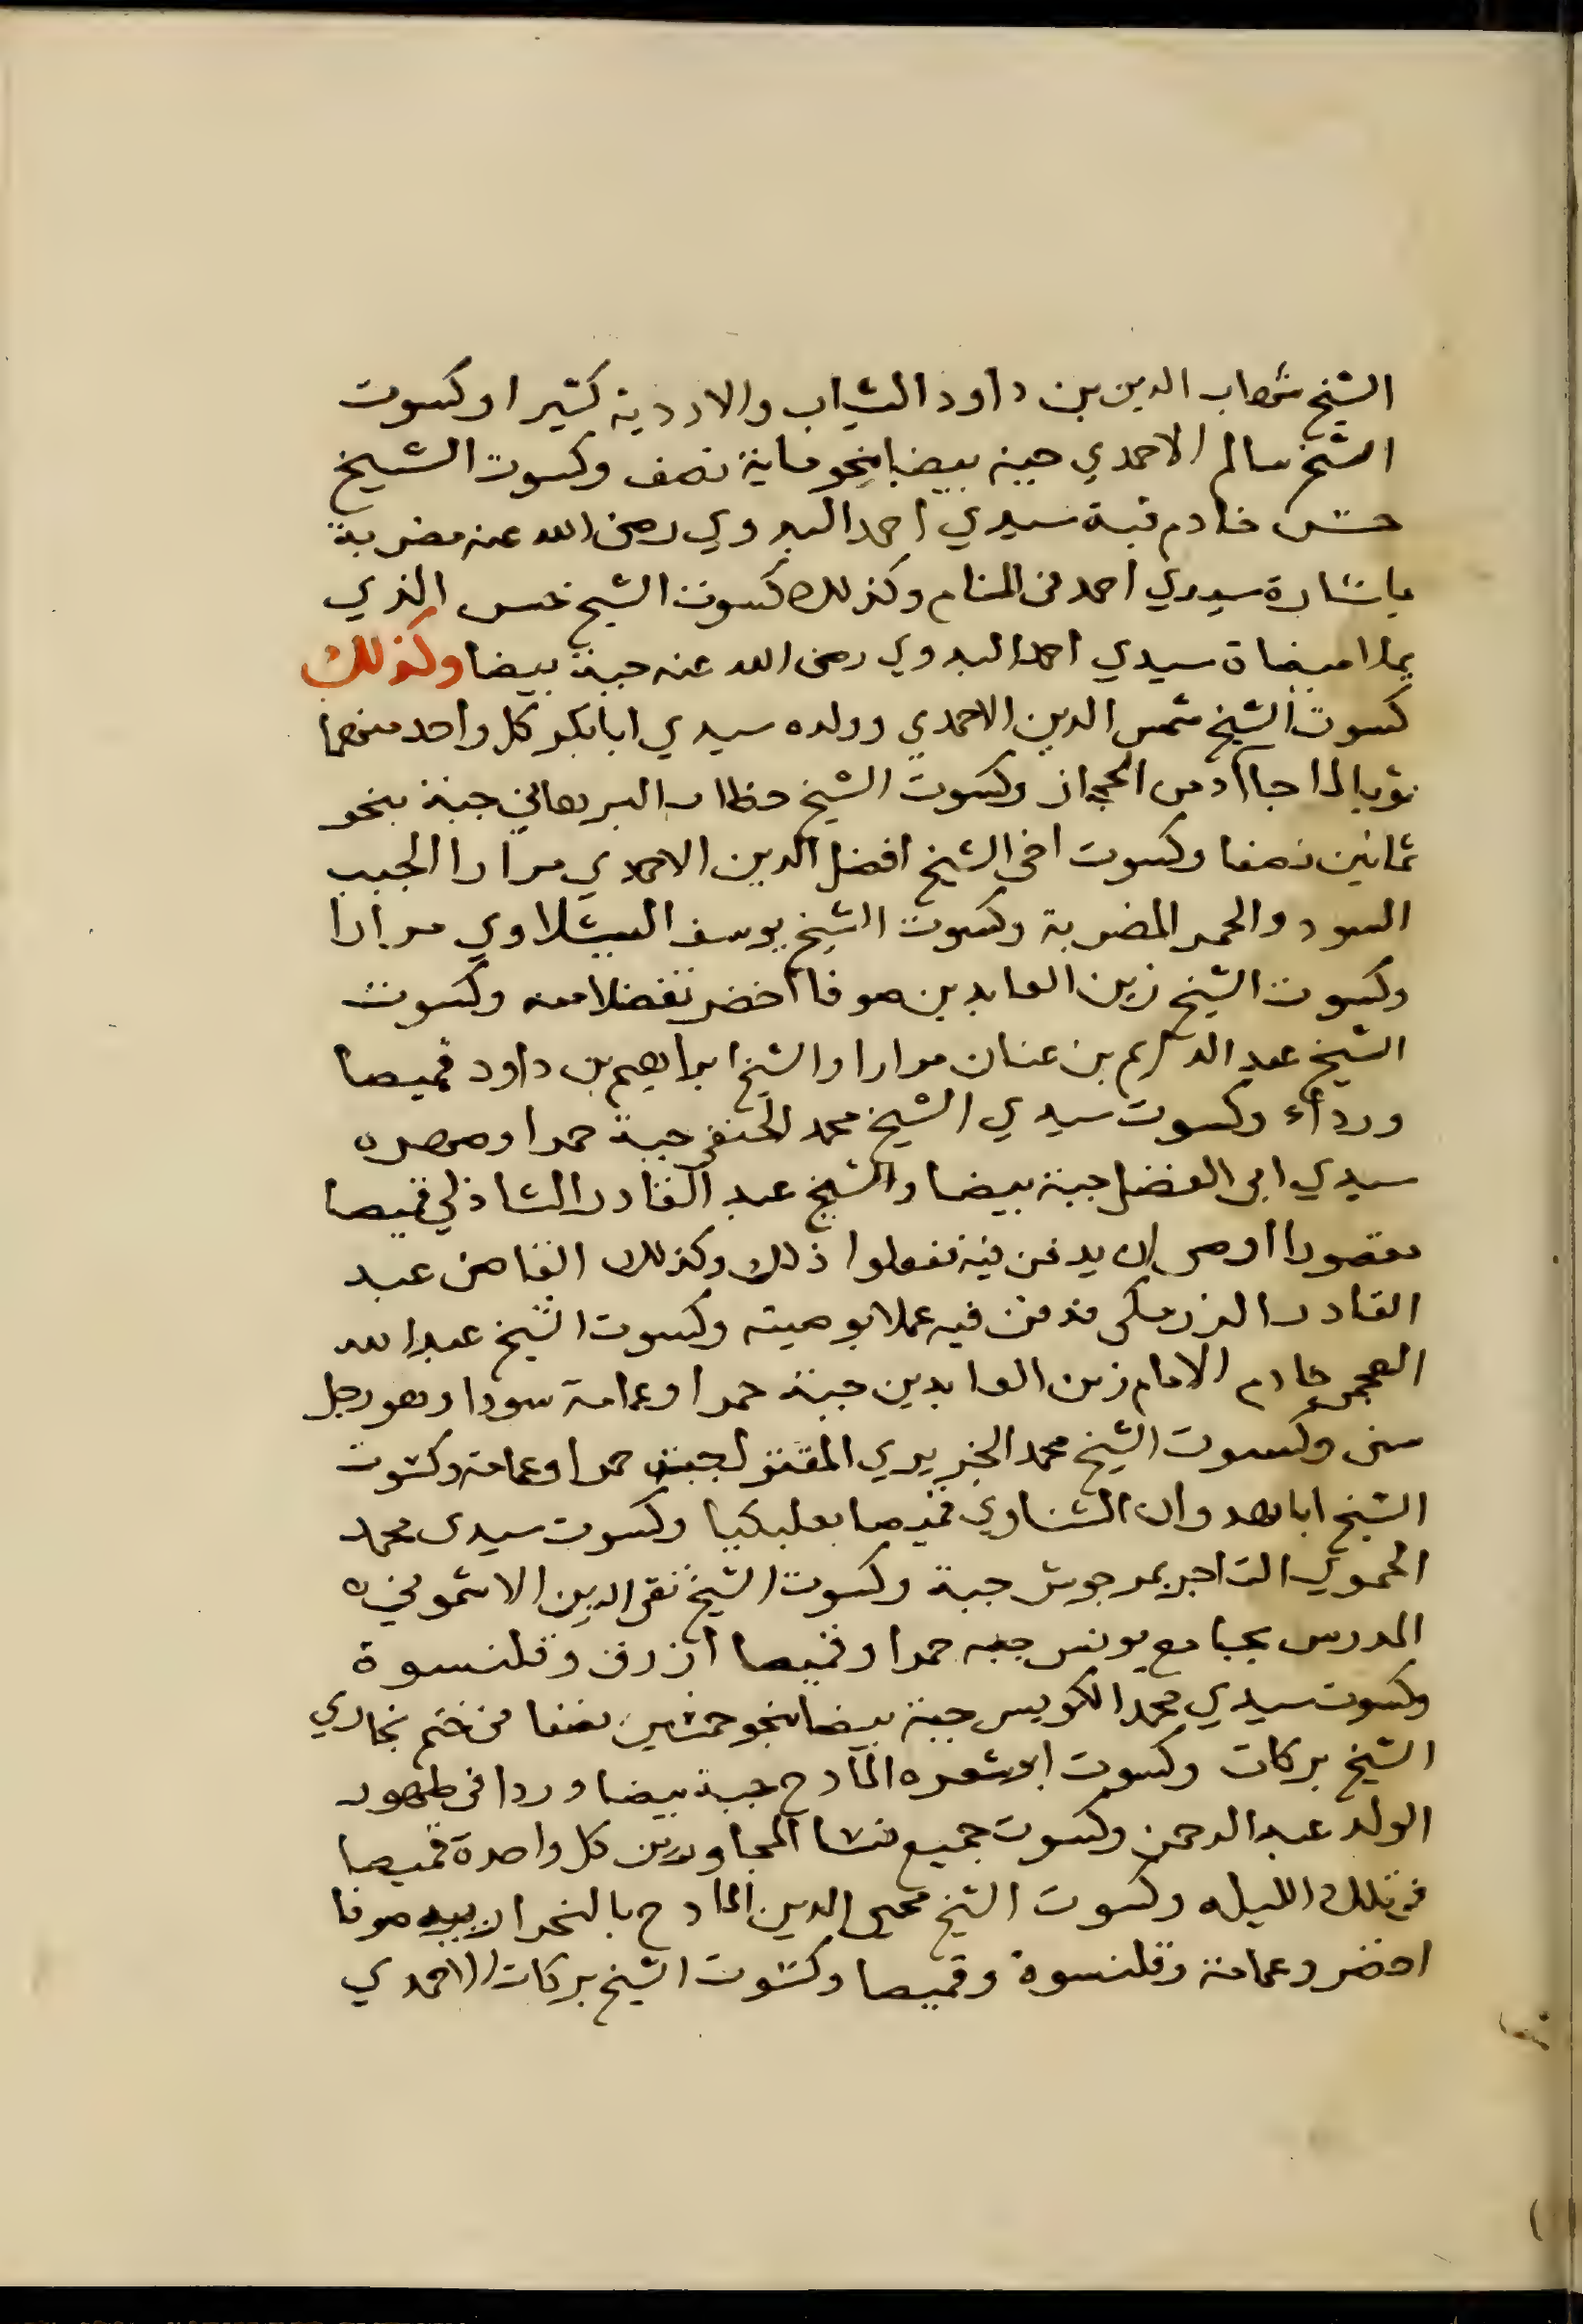 الشيخ شهاب الدين بن داود الثياب والاردية كثيرا وكسوت
الشيخ سالم الاحمدي جبة بيضا بنحو ماية نصف وكسوت الشيخ
حسن خادم قبة سيدي احمد البدوي رضى الله عنه مضربة
باشارة سيدي احمد فى المنام وكذلك كسوت الشيخ خميس الذي
يملا ميضاة سيدي احمد البدوي رضى الله عنه جبة بيضا وكذلك
كسوت الشيخ شمس الدين الاحمدي وولده سيدي ابا بكر كل واحد منهما
ثوبا لما جاآ من الحجاز وكسوت الشيخ حطاب البرهاني جبة بنحو
ثمانين نصفا وكسوت اخى الشيخ افضل الدين الاحمدي مرارا الجبب
السود والحمر المضربة وكسوت الشيخ يوسف البشلاوي مرارا
وكسوت الشيخ زين العابدين صوفا اخضر تفضلا منه وكسوت
الشيخ عبد الدايم بن عنان مرارا والشيخ ابراهيم بن داود قميصا
ورداء وكسوت سيدي الشيخ محمد الحنفى جبة حمرا وصهره
سيدي ابى الفضل جبة بيضا والشيخ عبد القادر الشاذلي قميصا
مقصورا اوصى ان يدفن فيه ففعلوا ذلك وكذلك القاضى عبد
القادر الزرمكى فدفن فيه عملا بوصيته وكسوت الشيخ عبد الله
العجمى خادم الامام زين العابدين جبة حمرا وعمامة سودا وهو رجل
سنى وكسوت الشيخ محمد الخريري المقتول جبة حمرا وعمامة وكسوت
الشيخ ابا هدوان الشناوي قميصا بعلبكيا وكسوت سيدى محمد
الحموي التاجر بمرجوش جبة وكسوت الشيخ تقى الدين الاشموني
المدرس بجامع يونس جبه حمرا وقميصا ازرق وقلنسوة
وكسوت سيدي محمد الكويس جبة بيضا بنحو خمسين نصفا فى ختم بخاري
الشيخ بركات وكسوت ابو شعره المادح جبة بيضا وردا فى طهور
الولد عبد الرحمن وكسوت جميع نسا المجاورين كل واحدة قميصا
فى تلك الليله وكسوت الشيخ محيى الدين المادح بالنحرارييه صوفا
اخضر وعمامة وقلنسوة وقميصا وكسوت الشيخ بركات الاحمدي